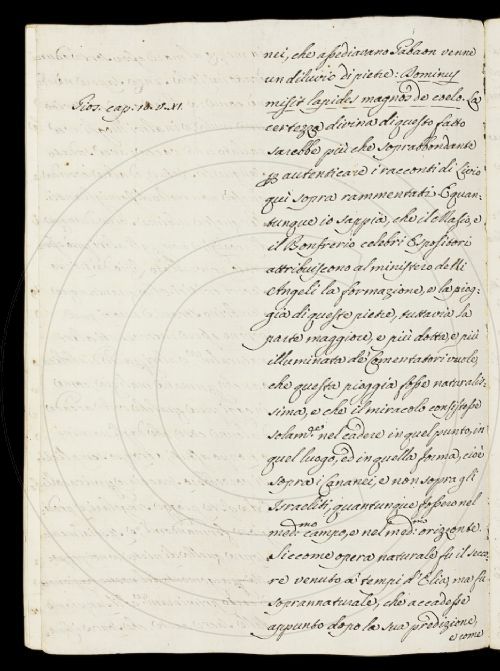 nei, che assediavano Gabaon venne
un diluvio di pietre: Dominus
misit lapides magnos de coelo. La
Gios. cap: 10. v. XI.
certezza divina di questo fatto
sarebbe più che soprabbondante
p autenticare i racconti di Livio
quì sopra rammentati. E quan-
tunque io sappia, che il Masio, e
il Bonfrerio celebri Espositori
attribuiscono al ministero delli
Angeli la formazione, e la piog-
gia di queste pietre, tuttavia la
parte maggiore, e più dotta, e più
illuminata de' Comentatori vuole,
che questa pioggia fosse naturalis-
sima, e che il miracolo consistesse
solam.te nel cadere in quel punto, in
quel luogo, ed in quella forma, cioè
sopra i Cananei, e non sopra gli
Israeliti, quantunque fossero nel
med:mo campo, e nel med:mo orizzonte.
Siccome opera naturale fu il secco-
re venuto a' tempi d'Elia, ma fu
soprannaturale, che accadesse
appunto dopo la sua predizione,
e come